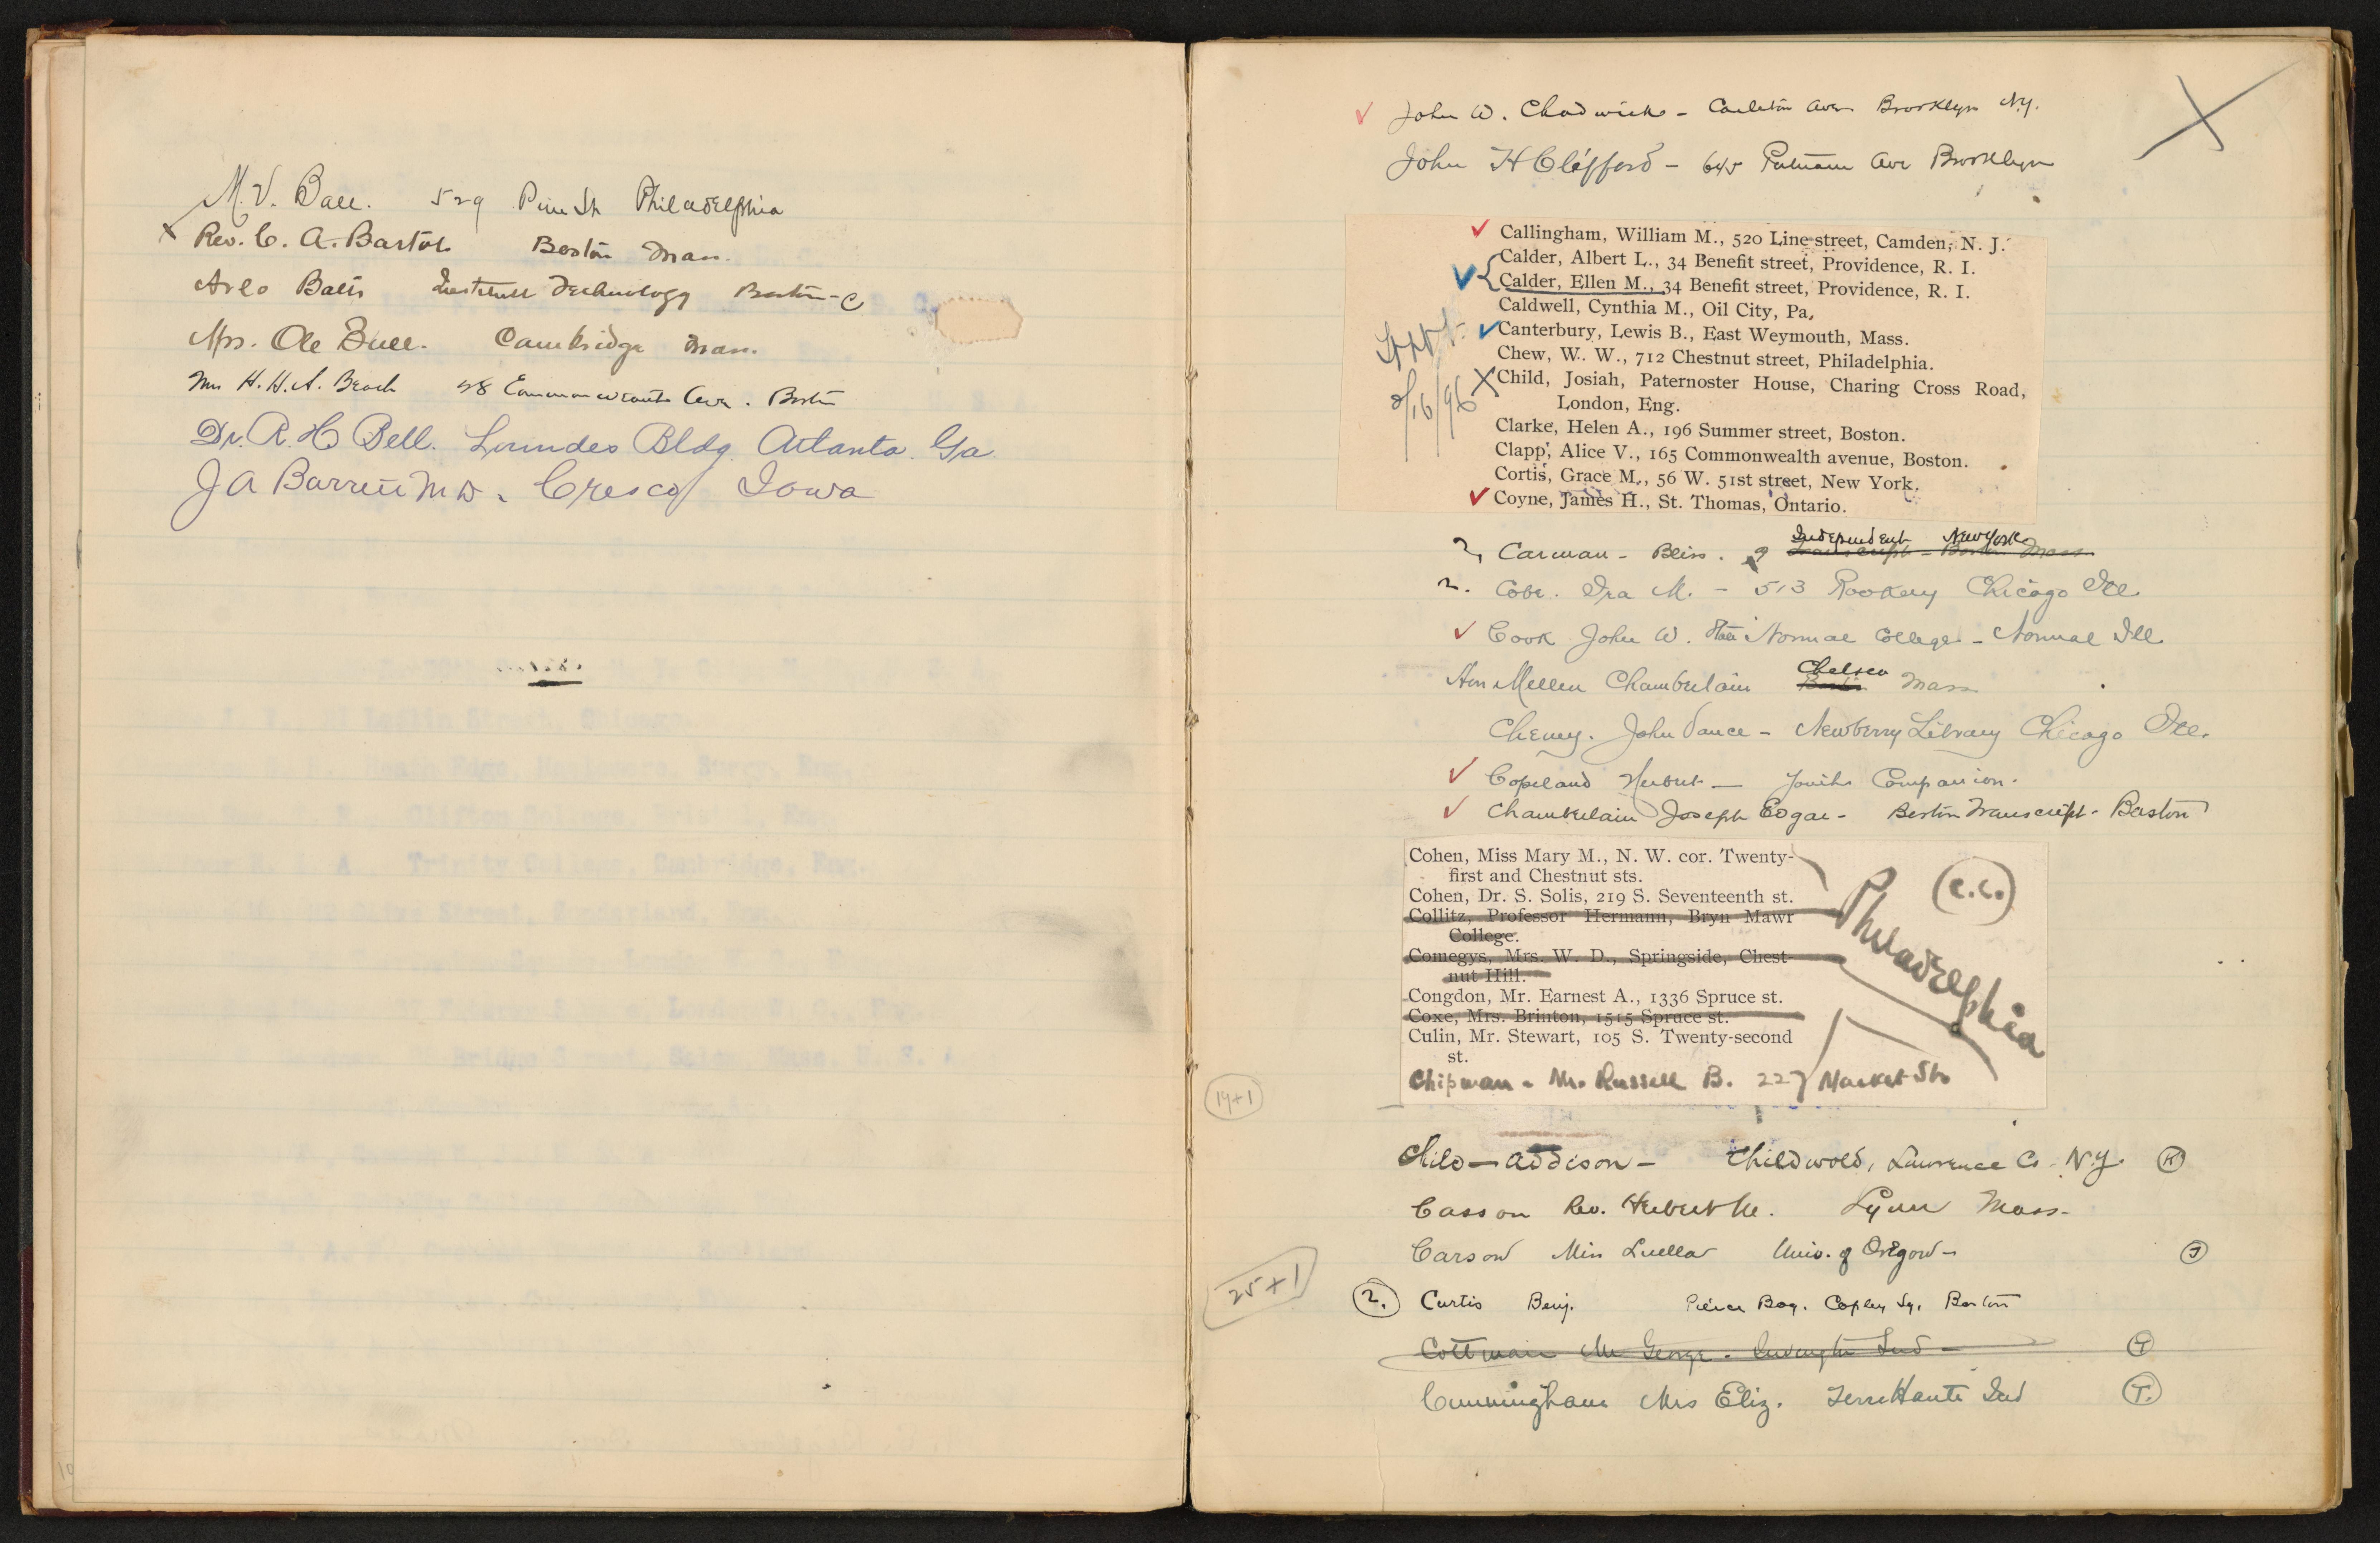 M. V. Ball. 529 Pine St Philadelphia
X Rev. C. A. Bartol Boston Mass.
Arlo Bates Institute Technology Boston - C
Mrs. Ole Bull. Cambridge Mass.
Mrs H. H. A. Beach 28 Commonwealth Ave. Boston
Dr. R. H Bell. Lowndes Bldg. Atlanta. Ga.
J A Barrett M D. Cresco Iowa
10
John W. Chadwick - Carleton Ave Brooklyn N.Y.
John H Clifford - 645 Putnam Ave Brooklyn
Callingham, William M., 520 Line street, Camden, N. J.
Calder, Albert L., 34 Benefit street, Providence, R. I.
Calder, Ellen M., 34 Benefit street, Providence, R. I.
Caldwell, Cynthia M., Oil City, Pa.
Canterbury, Lewis B., East Weymouth, Mass.
Chew, W. W., 712 Chestnut street, Philadelphia.
X Child, Josiah, Paternoster House, Charing Cross Road,
London, Eng.
Clarke, Helen A., 196 Summer street, Boston.
Clapp, Alice V., 165 Commonwealth avenue, Boston.
Cortis, Grace M., 56 W. 51st street, New York.
Coyne, James H., St. Thomas, Ontario.
/16/96
Independent New York
2, Carman - Bliss. of Transcript - Boston Mass
2. Cobe. Ira M. - 513 Rookery Chicago Ill.
Cook John W. State Normal College - Normal Ill
Chelsea
Hon Mellen Chamberlain Boston Mass
Cheney. John Vance - Newberry Library Chicago Ill.
Copeland Herbert - Youths Companion.
Chamberlain Joseph Edgar - Boston Transcript - Boston
Cohen, Miss Mary M., N. W. cor. Twenty-
first and Chestnut sts.
Cohen, Dr. S. Solis, 219 S. Seventeenth st.
Collitz, Professor Hermann, Bryn Mawr
College.
Comegys, Mrs. W. D., Springside, Chest-
nut Hill.
Congdon, Mr. Earnest A., 1336 Spruce st.
Coxe, Mrs. Brinton, 1515 Spruce st.
Culin, Mr. Stewart, 105 S. Twenty-second
st.
Chipman - Mr. Russell B. 227 Market St.
Philadelphia
(C.C.)
19+1
Child - Addison - Childwold, Lawrence Co. N.Y. K
Casson Rev. Herbert N. Lynn Mass.
Carson Miss Luella Univ. of Oregon - J
25+1
2. Curtis Benj. Pierce Bdg. Copley Sq. Boston
Cottman Mr George. Ind - T
Cunningham Mrs Eliz. Terre Haute Ind T.